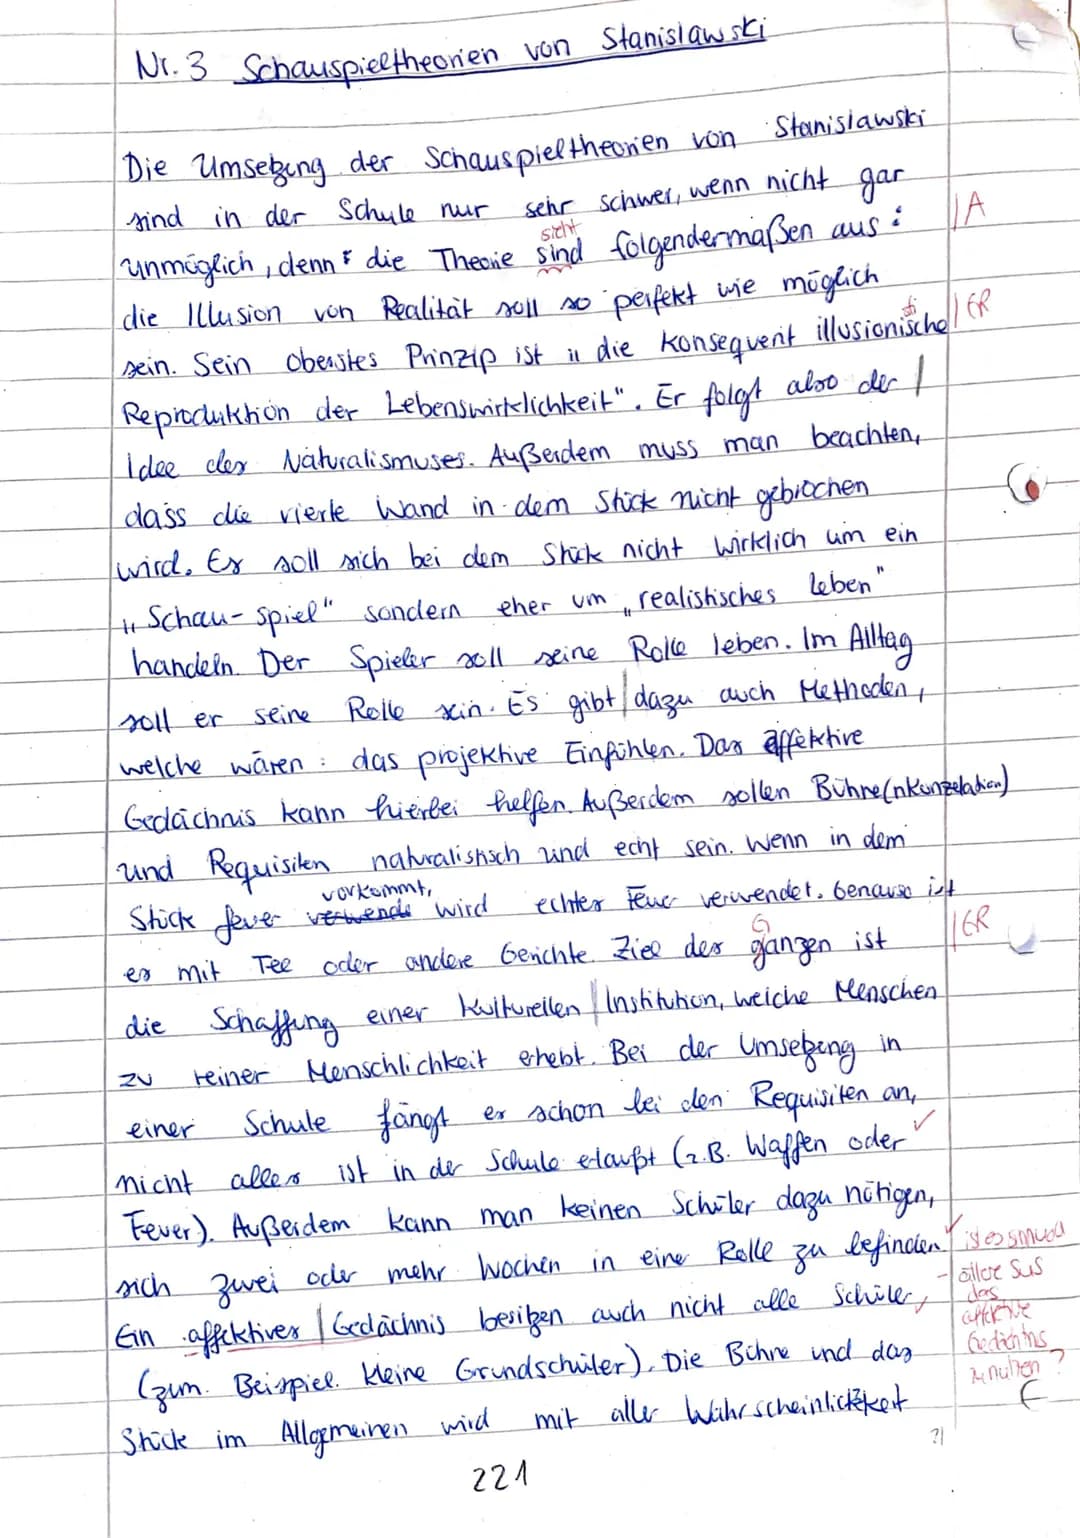 Nr. 3 Schauspieltheorien von Stanislawski
Die Umsetzung der Schauspieltheorien von Stanislawski
sind in der Schule nur sehr schwer, wenn nicht gar
sieht
|A
unmöglich, denn die Theorie sind folgendermaßen aus:
die Illusion von Realität soll so perfekt wie möglich
sti || GR
sein. Sein oberstes Prinzip ist „die konsequent illusionische
Reproduktion der Lebenswirklichkeit". Er folgt also der
Idee des Naturalismuses. Außerdem muss man beachten,
dass die vierte Wand in dem Stück nicht gebrochen
wird. Es soll sich bei dem Stück nicht wirklich um ein
„Schau-spiel" sondern eher um „realistisches Leben"
handeln. Der Spieler soll seine Rolle leben. Im Alltag
soll er seine Rolle sein. Es gibt dazu auch Methoden,
welche wären: das projektive Einfühlen. Das affektive
Gedächnis kann hierbei helfen. Außerdem sollen Bühne(nkonzelation)
und Requisiten naturalistisch und echt sein. Wenn in dem
vorkommt,
Stück feuer verwende wird echtes Feuer verwendet. Genauso ist
G |GR
es mit Tee oder andere Gerichte. Ziel des ganzen ist
die Schaffung einer kulturellen Institution, welche Menschen
zu reiner Menschlichkeit erhebt. Bei der Umsetzung in
einer Schule fängt es schon bei den Requisiten an,
nicht alles ist in der Schule erlaubt (z.B. Waffen oder
Feuer). Außerdem kann man keinen Schüler dazu nötigen,
sich zwei oder mehr Wochen in eine Rolle zu befinden.
Ein affektives Gedächnis besitzen auch nicht alle Schüler,
(zum Beispiel kleine Grundschüler). Die Bühne und das
Stück im Allgemeinen wird mit aller Wahrscheinlichkeit
ist es sinnvoll
ältere SuS
das
affektive
Gedächtnis
zu nutzen?
221